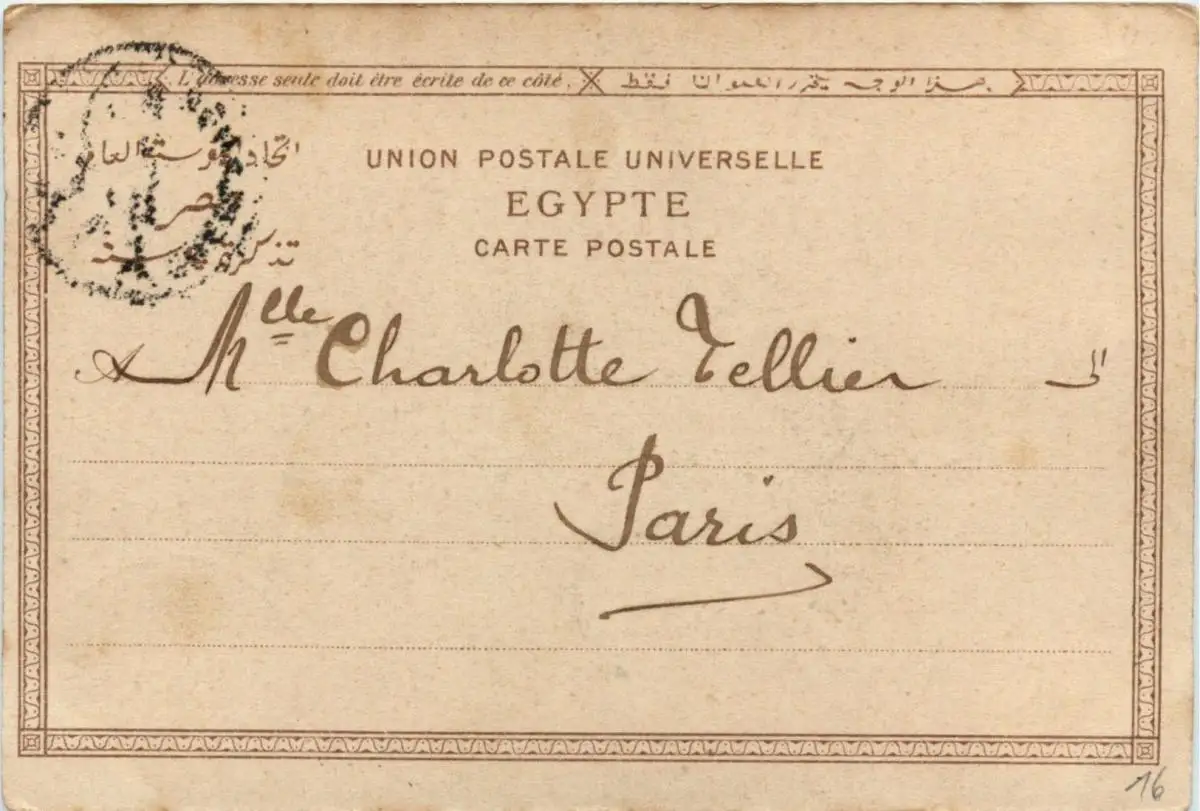 L'adresse seule doit être écrite de ce côté. هذا الوجه مقرر للعنوان فقط
اتحاد البوستة العام
UNION POSTALE UNIVERSELLE
مصر
EGYPTE
تذكرة بوستة
CARTE POSTALE
à Mlle Charlotte Tellier الى
Paris
16